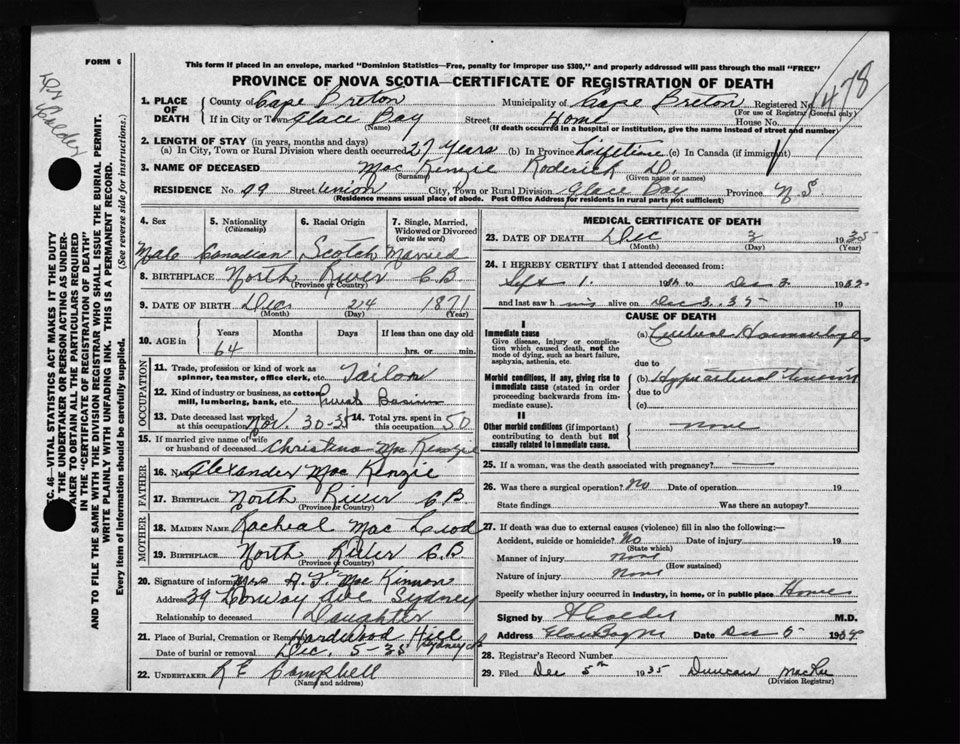 FORM 6
This form if placed in an envelope, marked "Dominion Statistics—Free, penalty for improper use $300," and properly addressed will pass through the mail "FREE"
PROVINCE OF NOVA SCOTIA—CERTIFICATE OF REGISTRATION OF DEATH
Dr Calder
1478
1. PLACE OF DEATH
County of Cape Breton Municipality of Cape Breton Registered No.
(For use of Registrar General only)
If in City or Town Glace Bay Street Home House No.
(Name) (If death occurred in a hospital or institution, give the name instead of street and number)
2. LENGTH OF STAY (in years, months and days)
(a) In City, Town or Rural Division where death occurred 27 years (b) In Province Lifetime (c) In Canada (if immigrant)
3. NAME OF DECEASED Mac Kenzie Roderick D.
(Surname) (Given name or names)
RESIDENCE No. 99 Street Union City, Town or Rural Division Glace Bay Province N.S.
(Residence means usual place of abode. Post Office Address for residents in rural parts not sufficient)
4. Sex 5. Nationality 6. Racial Origin 7. Single, Married, Widowed or Divorced
(Citizenship) (write the word)
Male Canadian Scotch Married
8. BIRTHPLACE North River C.B
(Province or Country)
9. DATE OF BIRTH Dec 24 1871
(Month) (Day) (Year)
10. AGE in Years Months Days If less than one day old
64 hrs. or min.
OCCUPATION
11. Trade, profession or kind of work as spinner, teamster, office clerk, etc. Tailor
12. Kind of industry or business, as cotton mill, lumbering, bank, etc.
13. Date deceased last worked at this occupation Nov. 30-35 14. Total yrs. spent in this occupation 50
15. If married give name of wife or husband of deceased Christina Mac Kenzie
FATHER
16. Name Alexander Mac Kenzie
17. Birthplace North River C B
(Province or Country)
MOTHER
18. Maiden Name Racheal Mac Leod
19. Birthplace North River C.B.
(Province or Country)
20. Signature of informant Mrs A. F. Mac Kinnon
Address 39 Ave Sydney
Relationship to deceased Daughter
21. Place of Burial, Cremation or Removal Hardwood Hill Sydney
Date of burial or removal Dec. 5-35
22. UNDERTAKER Campbell
(Name and address)
MEDICAL CERTIFICATE OF DEATH
23. DATE OF DEATH Dec 3 1935
(Month) (Day) (Year)
24. I HEREBY CERTIFY that I attended deceased from:
Sept 1. 19 to Dec 3. 1935
and last saw him alive on Dec 3. 35
CAUSE OF DEATH
I
Immediate cause (a) Cerebral Haemorrhage
Give disease, injury or complication which caused death, not the mode of dying, such as heart failure, asphyxia, asthenia, etc.
due to
Morbid conditions, if any, giving rise to immediate cause (stated in order proceeding backwards from immediate cause).
(b)
due to
(c)
II
Other morbid conditions (if important) contributing to death but not causally related to immediate cause.
none
25. If a woman, was the death associated with pregnancy? —
26. Was there a surgical operation? No Date of operation 19
State findings Was there an autopsy?
27. If death was due to external causes (violence) fill in also the following:—
Accident, suicide or homicide? No Date of injury 19
(State which)
Manner of injury none
(How sustained)
Nature of injury None
Specify whether injury occurred in industry, in home, or in public place Home
Signed by A Calder M.D.
Address Glace Bay NS Date Dec 5 19
28. Registrar's Record Number
29. Filed Dec 5th 1935 Duncan MacRae
(Division Registrar)
SEC. 46—VITAL STATISTICS ACT MAKES IT THE DUTY
OF THE UNDERTAKER OR PERSON ACTING AS UNDER-
TAKER TO OBTAIN ALL THE PARTICULARS REQUIRED
IN THE "CERTIFICATE OF REGISTRATION OF DEATH"
AND TO FILE THE SAME WITH THE DIVISION REGISTRAR WHO SHALL ISSUE THE BURIAL PERMIT.
WRITE PLAINLY WITH UNFADING INK. THIS IS A PERMANENT RECORD.
Every item of information should be carefully supplied. (See reverse side for instructions.)